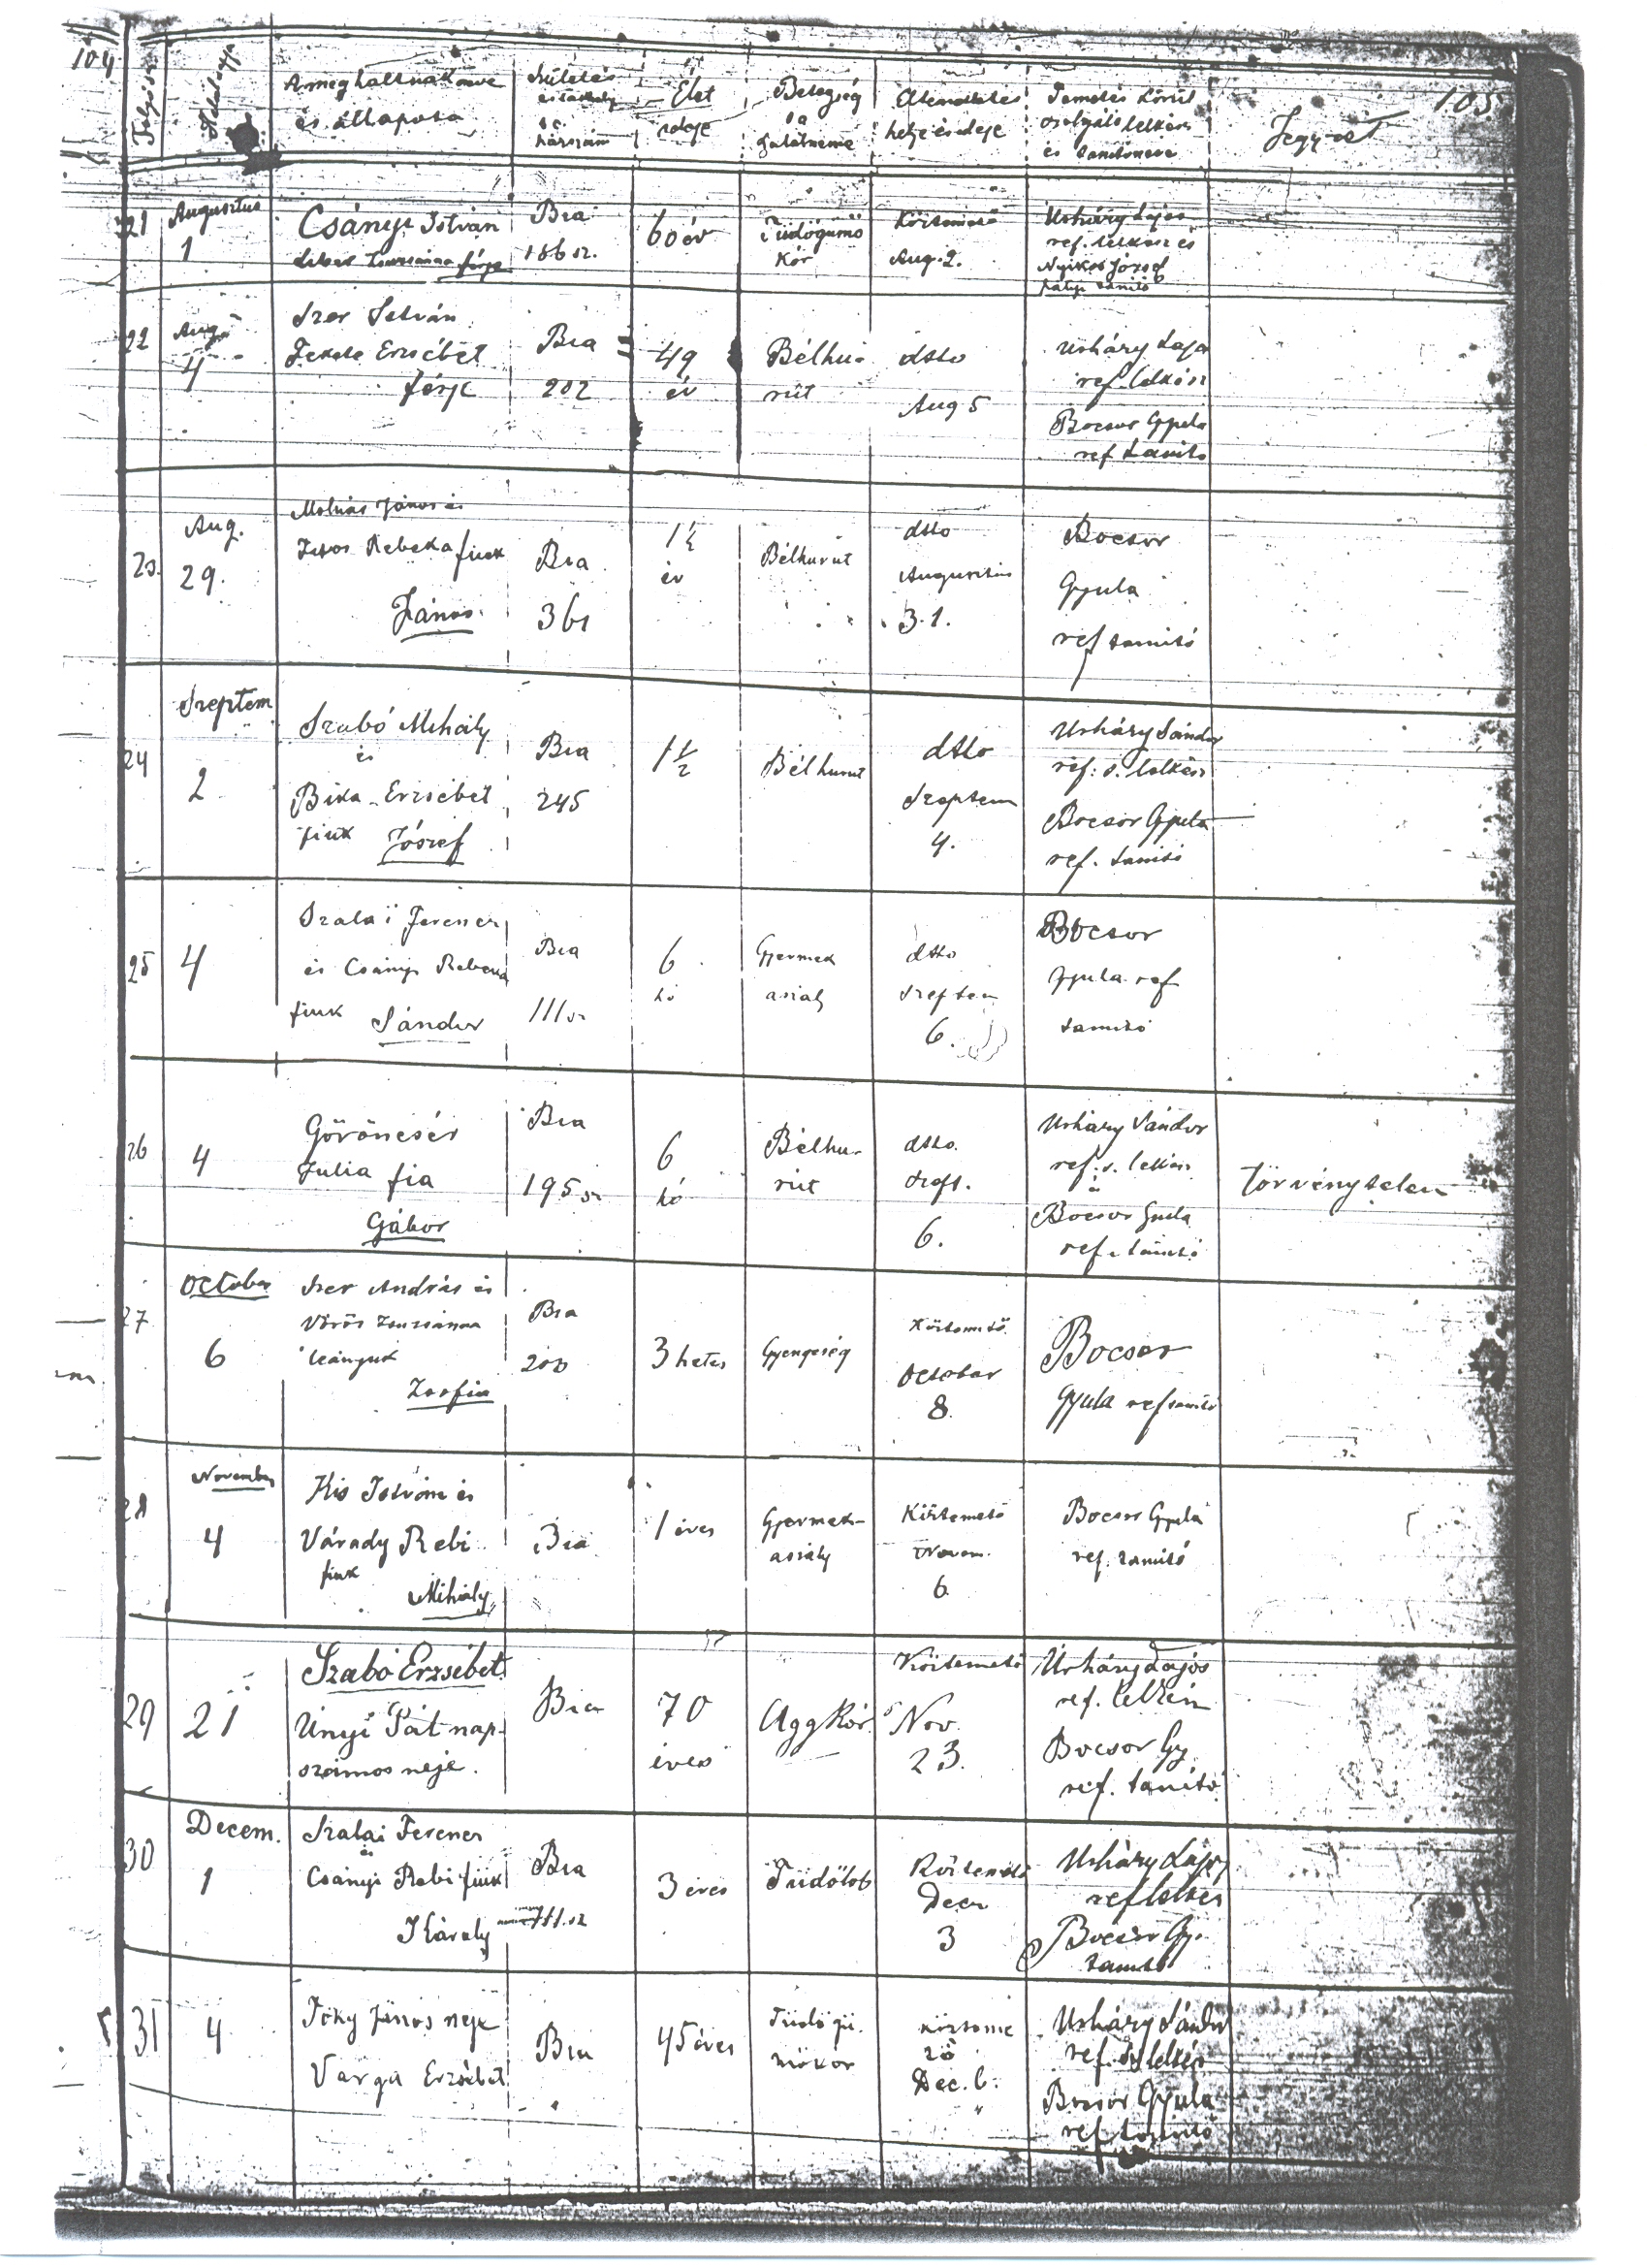 104
105
Halálnapja
A meghaltnak neve
és állapota
Születés
és
házszám
Élet
ideje
Betegség
s a
halálneme
Eltemettetés
helye és ideje
Temetés körül
szolgáló lelkész
és tanító neve
Jegyzet
21
Augusztus
1
Csányi István
Zsuzsánna férje
Bia
186 sz.
60 év
Tüdőgümő
kór
Köztemető
Aug. 2.
Urháry Lajos
ref. lelkész és
Nyikos József
tanító
22
Aug.
4
Szer István
Fekete Erzsébet
férje
Bia
202
49
év
Bélhu-
rút
dtto
Aug 5
Urháry Lajos
ref. lelkész
Bocsor Gyula
ref tanító
23.
Aug.
29.
Molnár János és
Rebeka fiuk
János.
Bia
361
1½
év
Bélhurut
dtto
Augusztus
31.
Bocsor
Gyula
ref tanitó
24
Szeptem
2
Szabó Mihály
és
Bika Erzsébet
fiuk József
Bia
245
1½
Bélhurut
dtto
Szeptem
4.
Urháry Sándor
ref. s. lelkész
Bocsor Gyula
ref. tanitó
25
4
Szalai Ferencz
és Csányi Rebeka
fiuk Sándor
Bia
111 sz
6
hó
Gyermek
aszály
dtto
Szeptem
6.
Bocsor
Gyula ref
tanitó
26
4
Göröncsér
Julia fia
Gábor
Bia
195 sz
6
hó
Bélhu-
rút
dtto.
Szept.
6.
Urháry Sándor
ref. s. lelkész
és
Bocsor Gyula
ref. tanitó
Törvénytelen
27
October
6
Szer András és
Vörös Zsuzsánna
leányuk
Zsofia
Bia
200
3 hetes
Gyengeség
Köztemető
October
8
Bocsor
Gyula ref tanitó
28
November
4
Kis István és
Várady Rebi
fiuk
Mihály
Bia
1 éves
Gyermek-
aszály
Köztemető
Novem.
6
Bocsor Gyula
ref. tanitó
29
21
Szabó Erzsébet
Unyi Pát nap-
számos neje.
Bia
70
éves
Aggkór
Köztemető
Nov.
23.
Urháry Lajos
ref. lelkész
Bocsor Gy.
ref. tanító
30
Decem.
1
Szalai Ferencz
és
Csányi Rebi fiuk
Károly
Bia
111. sz
3 éves
Tüdőlob
Köztemető
Decz
3
Urháry Lajos
ref lelkész
Bocsor Gy.
tanitó
31
4
Tóky János neje
Varga Erzsébet
Bia
45 éves
Tüdő gü-
mőkor
Közteme
tő
Dec. 6.
Urháry Sándor
ref. s. lelkész
Bocsor Gyula
ref tanitó